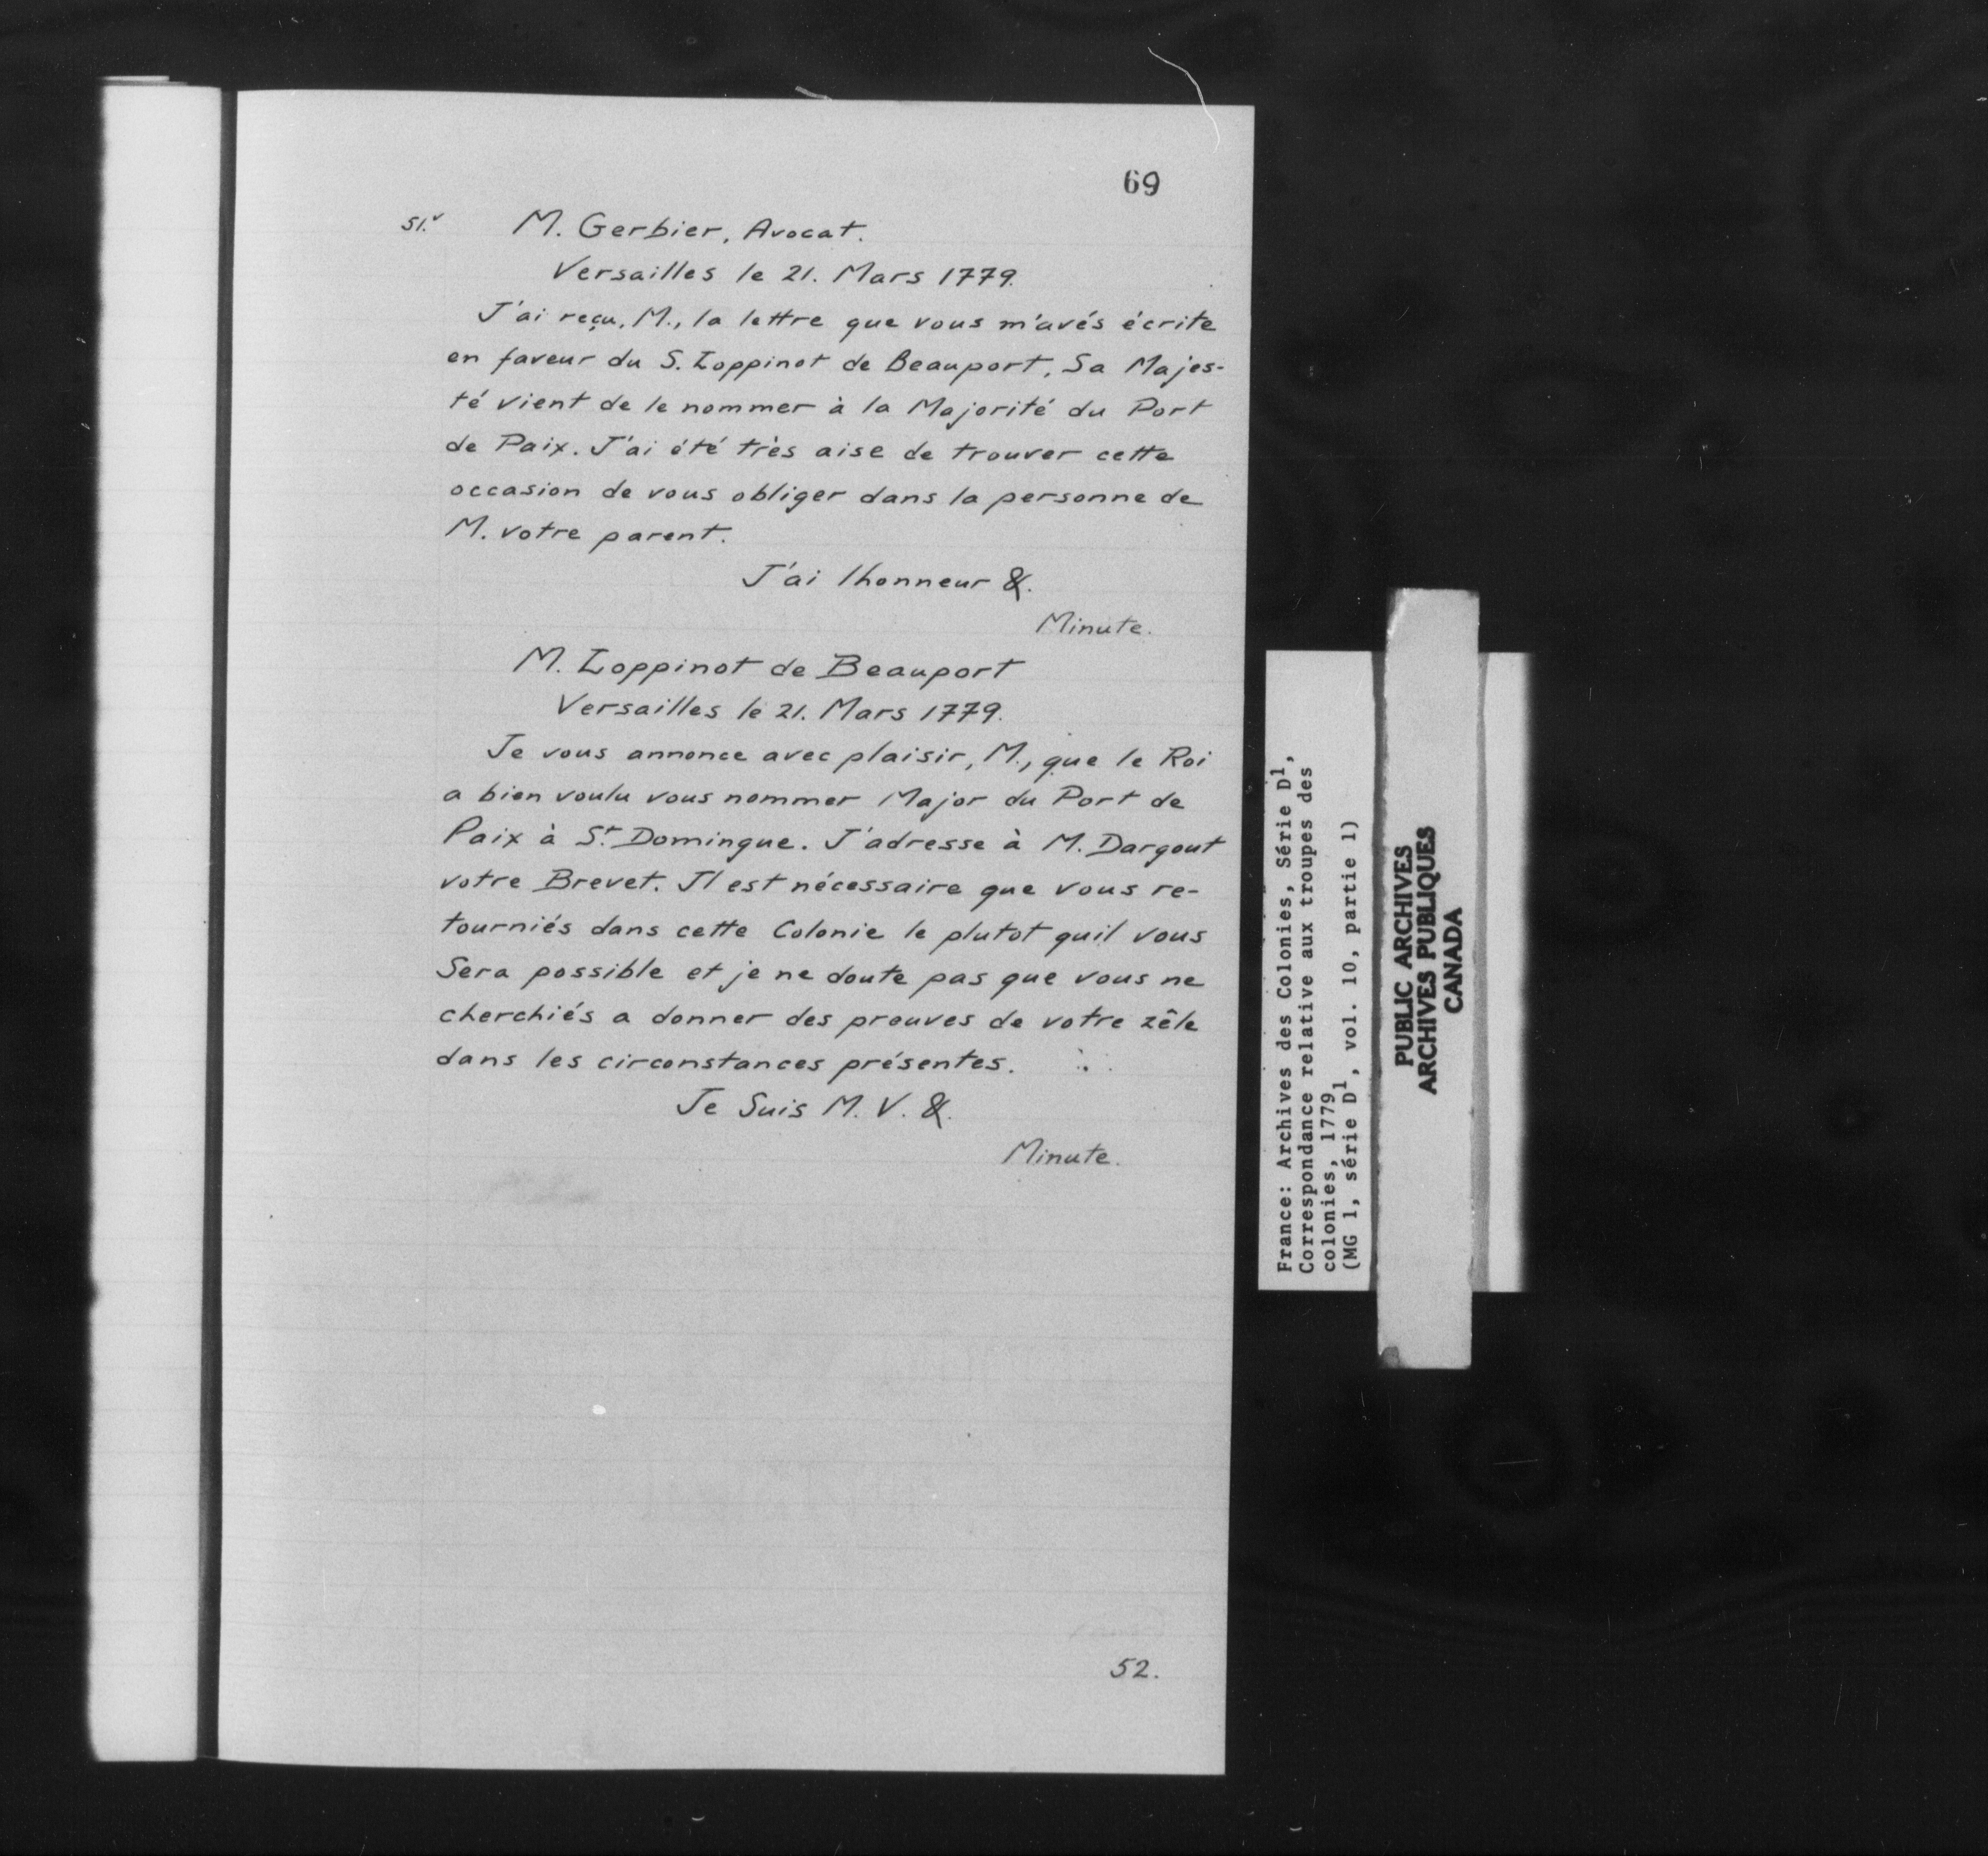 69
51.v M. Gerbier, Avocat.
Versailles le 21. Mars 1779.
J'ai reçu, M., la lettre que vous m'avés écrite
en faveur du S. Loppinot de Beauport. Sa Majes-
té vient de le nommer à la Majorité du Port
de Paix. J'ai été très aise de trouver cette
occasion de vous obliger dans la personne de
M. votre parent.
J'ai lhonneur &.
Minute.
M. Loppinot de Beauport
Versailles le 21. Mars 1779.
Je vous annonce avec plaisir, M., que le Roi
a bien voulu vous nommer Major du Port de
Paix à St. Domingue. J'adresse à M. Dargout
votre Brevet. Il est nécessaire que vous re-
tourniés dans cette Colonie le plutot quil vous
Sera possible et je ne doute pas que vous ne
cherchiés a donner des preuves de votre zêle
dans les circonstances présentes.
Je Suis M. V. &.
Minute.
52.
France: Archives des Colonies, Série D1,
Correspondance relative aux troupes des
colonies, 1779
(MG 1, série D1, vol. 10, partie 1)
PUBLIC ARCHIVES
ARCHIVES PUBLIQUES
CANADA